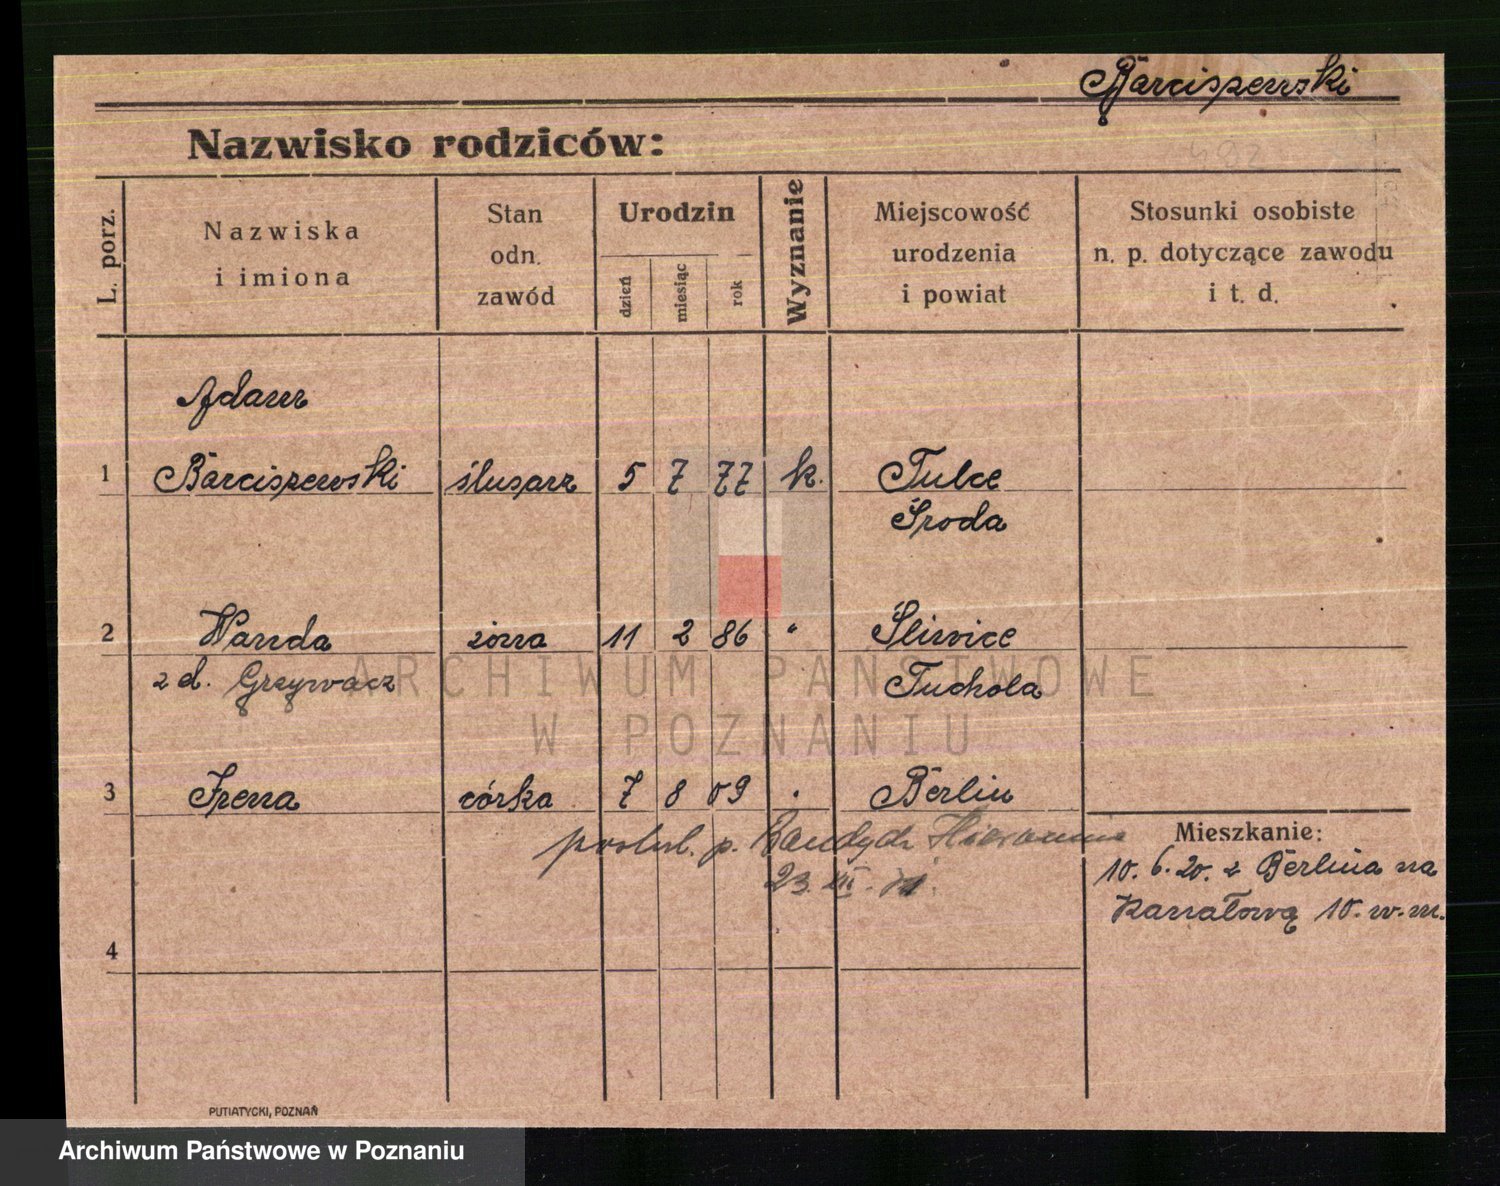 Barciszewski
Nazwisko rodziców:
482
L. porz.
Nazwiska
i imiona
Stan
odn.
zawód
Urodzin
dzień
miesiąc
rok
Wyznanie
Miejscowość
urodzenia
i powiat
Stosunki osobiste
n. p. dotyczące zawodu
i t. d.
Adam
1 Barciszewski ślusarz 5 7 77 k. Tulce
Środa
2 Wanda żona 11 2 86 " Śliwice
z d. Grzywacz Tuchola
ARCHIWUM PAŃSTWOWE
W POZNANIU
3 Irena córka 7 8 09 " Berlin
p.
23. III.
Mieszkanie:
10. 6. 20. z Berlina na
Kanałową 10. w. m.
4
PUTIATYCKI, POZNAŃ
Archiwum Państwowe w Poznaniu